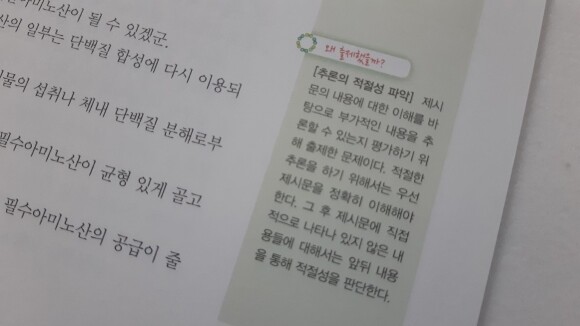 아미노산이 될 수 있겠군.
산의 일부는 단백질 합성에 다시 이용되
물의 섭취나 체내 단백질 분해로부
필수아미노산이 균형 있게 골고
필수아미노산의 공급이 줄
왜 출제했을까?
[추론의 적절성 파악] 제시
문의 내용에 대한 이해를 바
탕으로 부가적인 내용을 추
론할 수 있는지 평가하기 위
해 출제한 문제이다. 적절한
추론을 하기 위해서는 우선
제시문을 정확히 이해해야
한다. 그 후 제시문에 직접
적으로 나타나 있지 않은 내
용들에 대해서는 앞뒤 내용
을 통해 적절성을 판단한다.